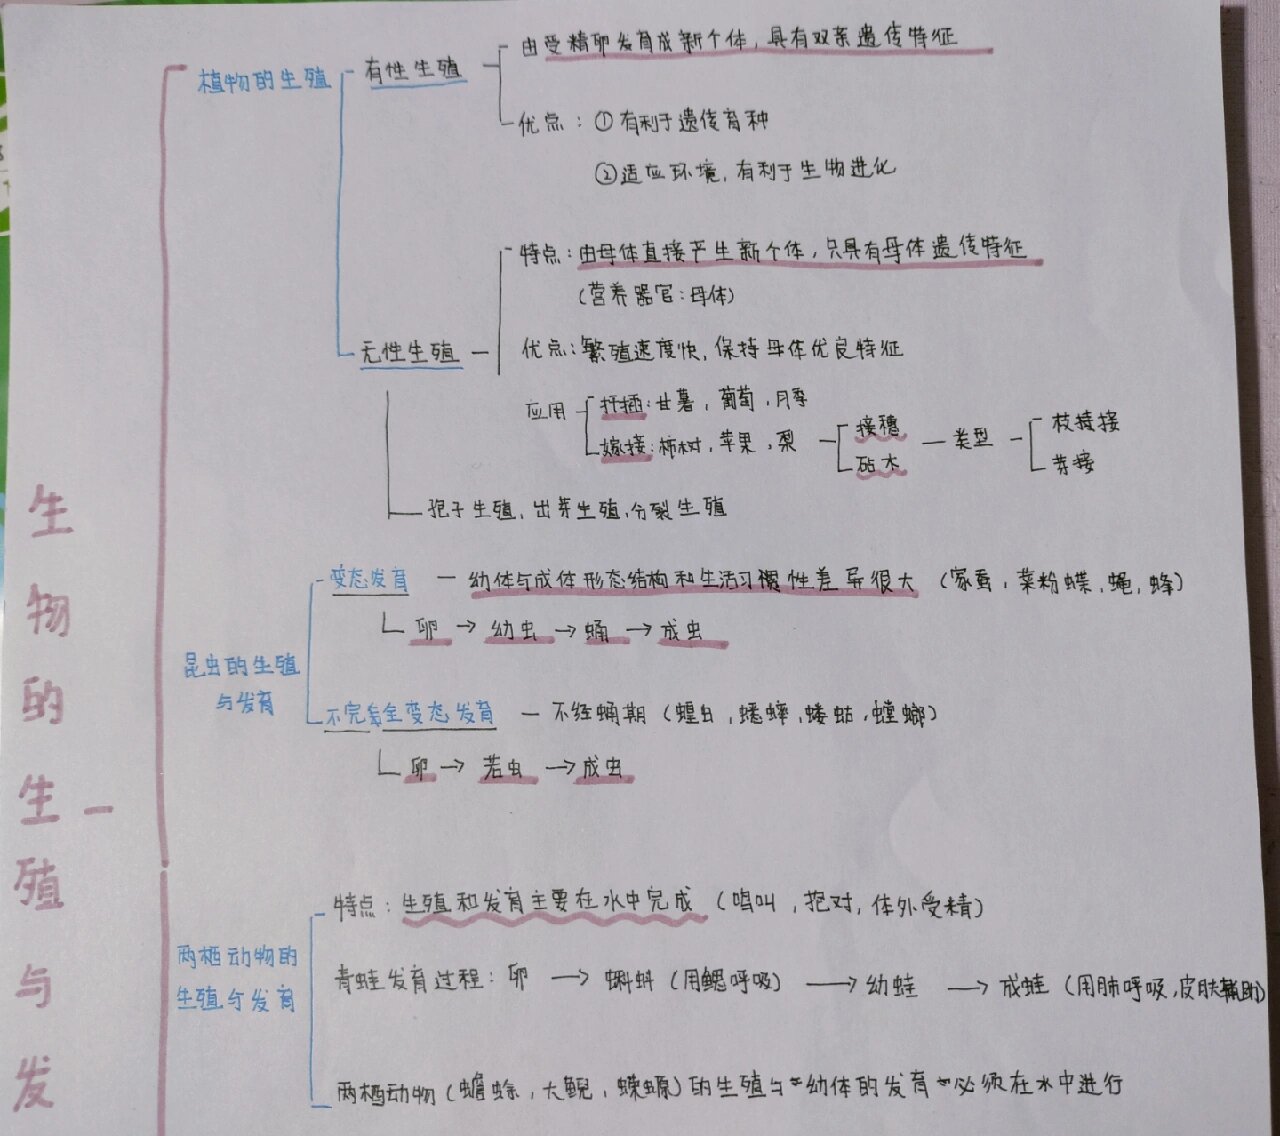 生物的生殖与发
植物的生殖
有性生殖
由受精卵发育成新个体，具有双亲遗传特征
优点：①有利于遗传育种
②适应环境，有利于生物进化
无性生殖
特点：由母体直接产生新个体，只具有母体遗传特征
（营养器官：母体）
优点：繁殖速度快，保持母体优良特征
应用
扦插：甘薯，葡萄，月季
嫁接：柿树，苹果，梨
接穗
砧木
类型
枝接
芽接
孢子生殖，出芽生殖，分裂生殖
昆虫的生殖
与发育
变态发育 — 幼体与成体形态结构和生活习惯性差异很大（家蚕，菜粉蝶，蝇，蜂）
卵→幼虫→蛹→成虫
不完全变态发育 — 不经蛹期（蝗虫，蟋蟀，蝼蛄，螳螂）
卵→若虫→成虫
两栖动物的
生殖与发育
特点：生殖和发育主要在水中完成（鸣叫，抱对，体外受精）
青蛙发育过程：卵→蝌蚪（用鳃呼吸）→幼蛙→成蛙（用肺呼吸，皮肤辅助）
两栖动物（蟾蜍，大鲵，蝾螈）的生殖与幼体的发育必须在水中进行